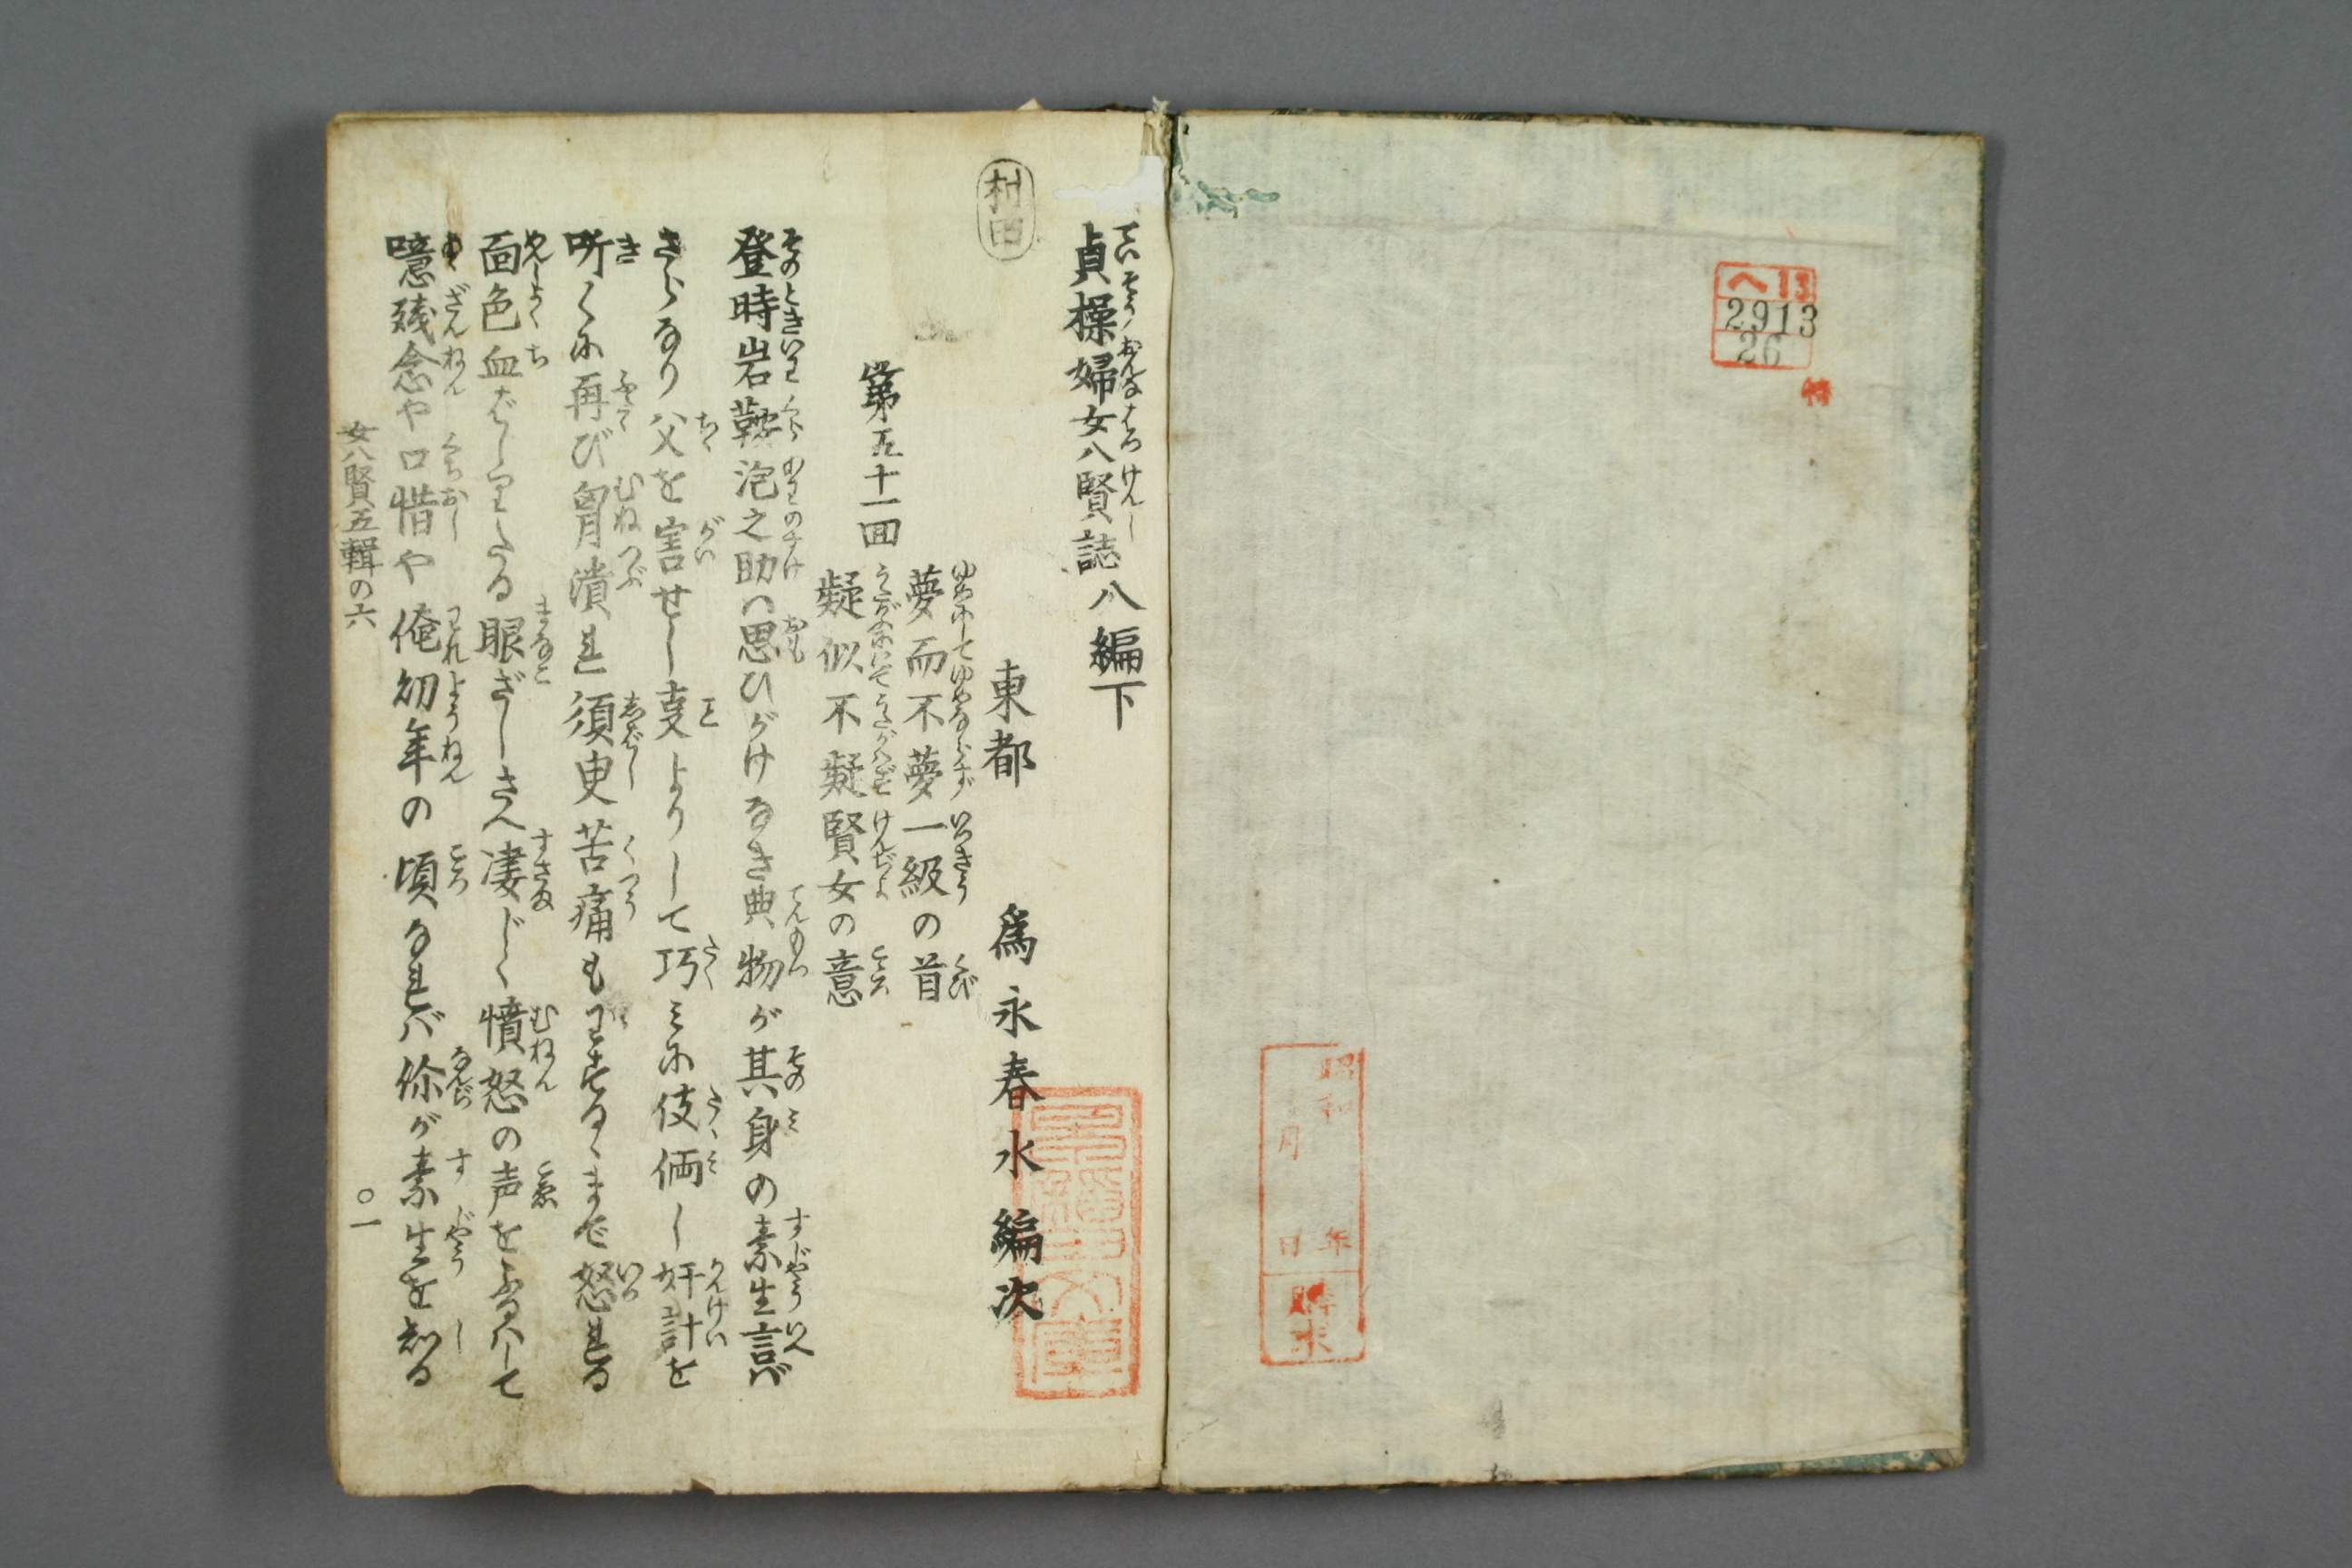 ヘ13
2913
26
特
昭和 年
月 日
購求
貞操婦女八賢誌八編下
村田
東都 爲永春水編次
第五十一回
夢而不夢一級の首
疑似不疑賢女の意
登時岩鞍泡之助ハ思ひがけなき典物が其身の素生言バ
さらなり父を害せし支よりして巧ミに伎倆し奸計を
听くに再び胷潰れ須臾苦痛もわするゝまで怒れる
面色血ばしりたる眼ざしさへ凄じく憤怒の声をふるハして
噫残念や口惜や俺幼年の頃なれバ你が素生を知る
女八賢五輯の六
〇一